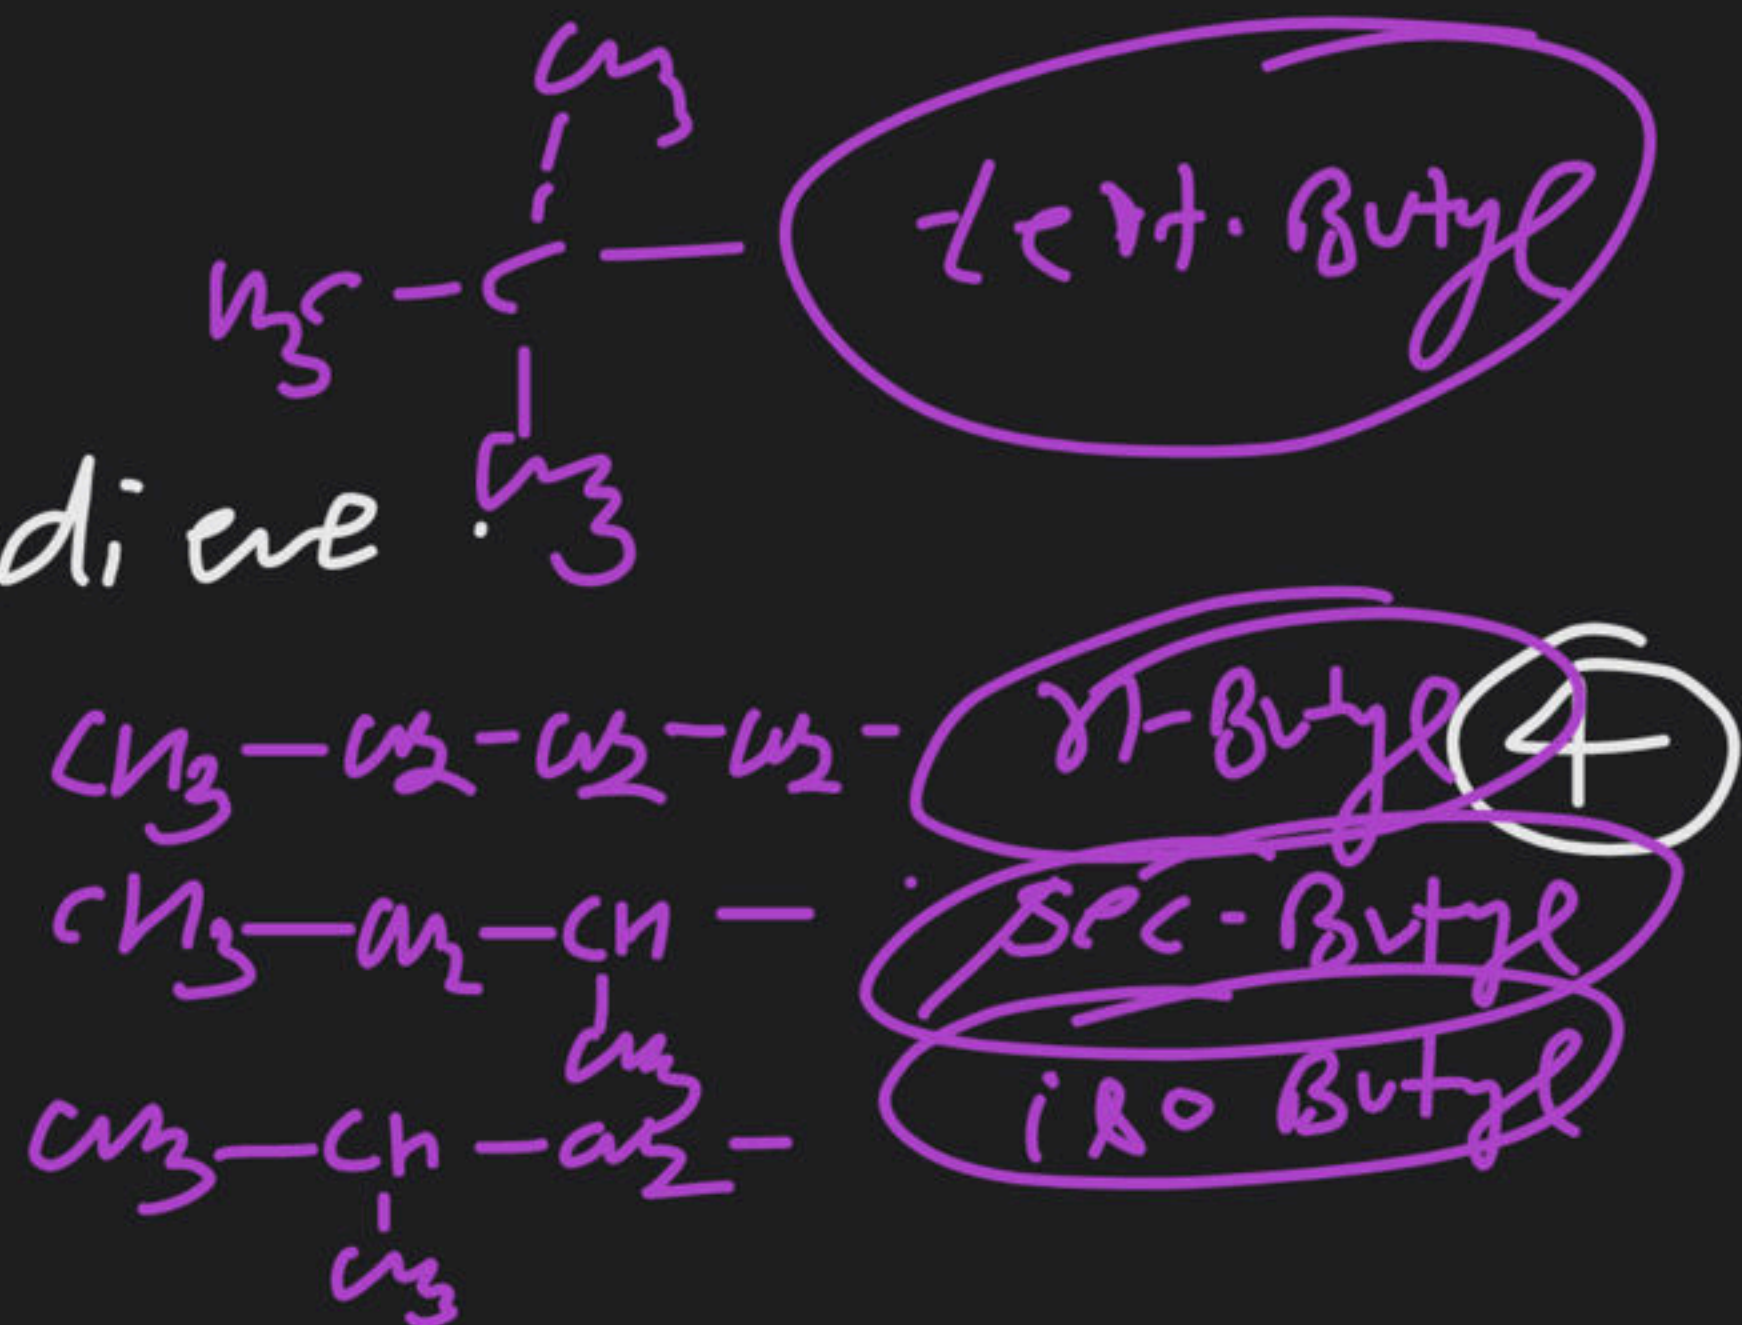 CH3
H3C - C - tert. Butyl
CH3
diene
CH3 - CH2 - CH2 - CH2 - n-Butyl 4
CH3 - CH2 - CH - sec-Butyl
CH3
CH3 - CH - CH2 - iso Butyl
CH3